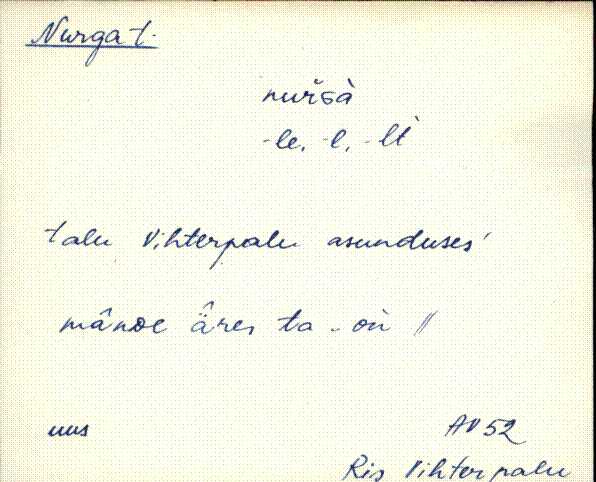 Nurga t.
nurGà
-le, -l, -lt
talu Vihterpalu asunduses
mânDe äres ta - on //
uus
AV 52
Ris Vihterpalu